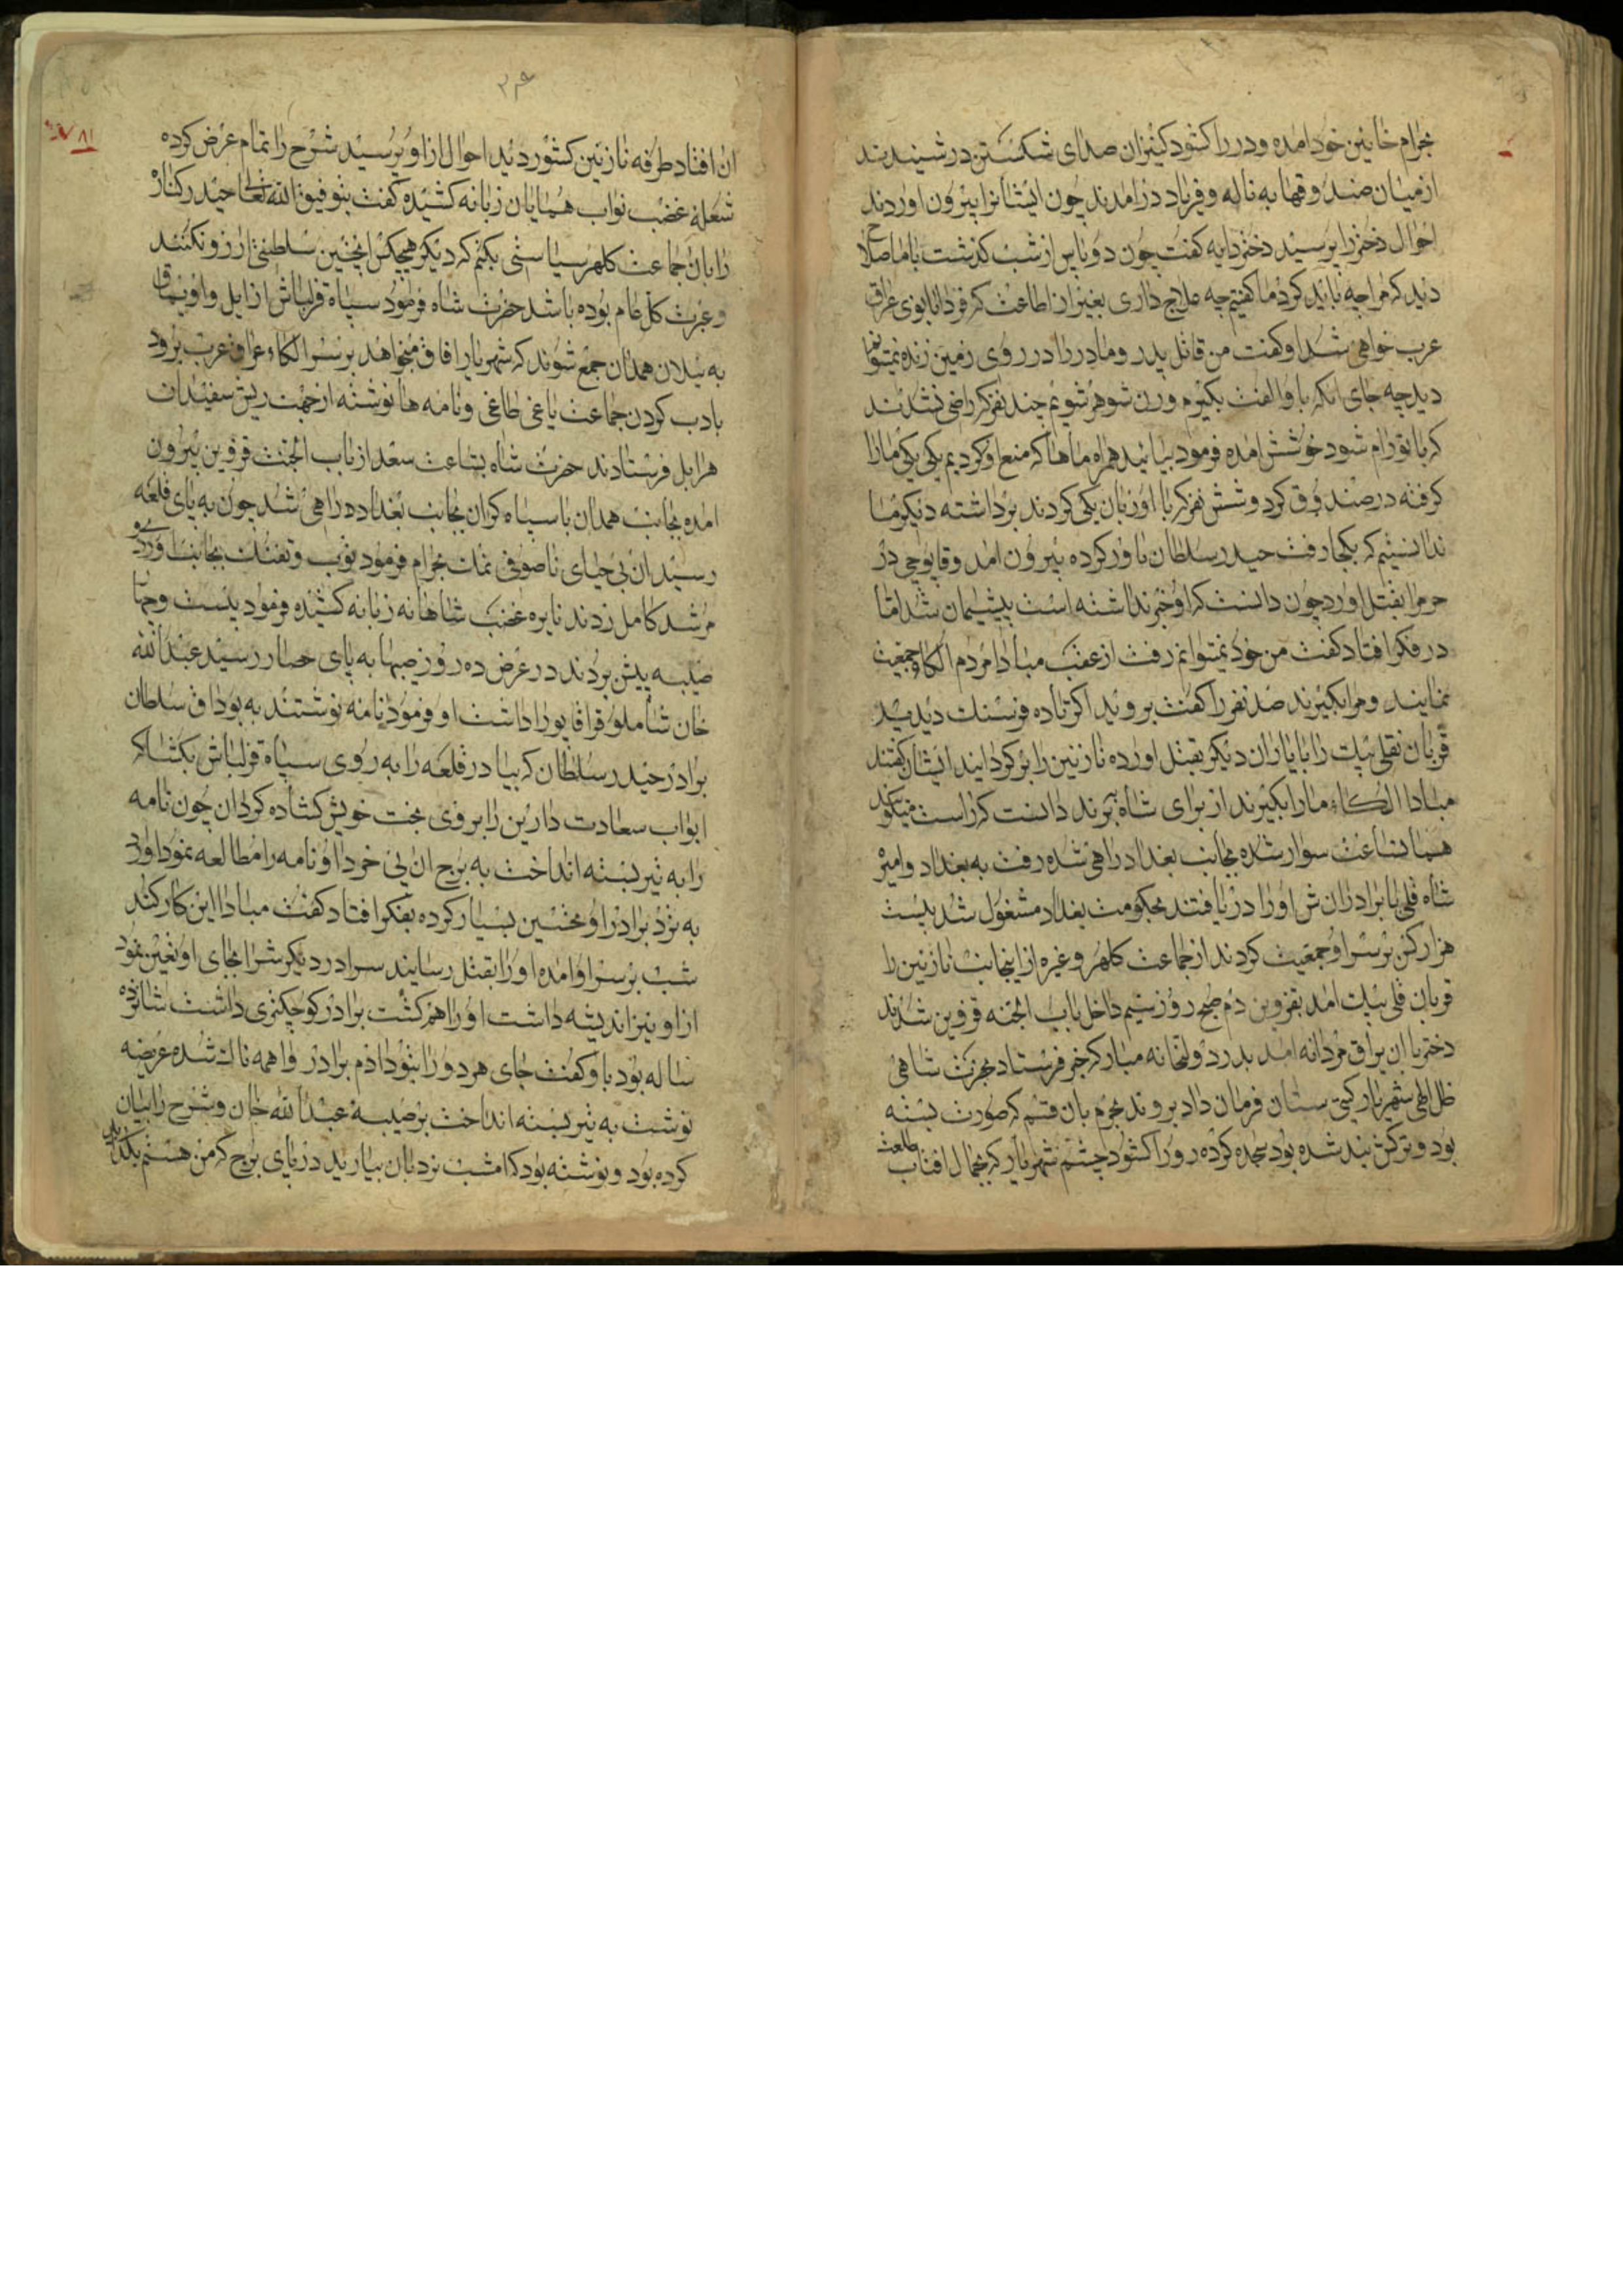 بحرام خانین خود امده و در را کشود کنیزان صدای شکستن در شنیدند
از میان صندوقها به ناله و فریاد درامدند چون ایشانرا بیرون اوردند
احوال دختر را پرسید دختر دایه کفت چون دو پاس از شب کذشت باما صلاح
دید که مرا چه باید کرد ما کفتیم چه علاج داری بغیر از اطاعت که فردا بانوی عراق
عرب خواهی شد او کفت من قاتل پدر و مادر را در روی زمین زنده نمیتوانم
دید چه جای انکه با او الفت بکیرم و زن شوهر شویم چند نفر که راضی نشدند
که با تو رام شود خوشش امده فرمود بیایید همراه ماها که منع او کردیم یکی یکی مارا
کرفته در صندوق کرد و شش نفر که با او زبان یکی کردند برداشته دیکر ما
ندانستیم که بکجا رفت حیدر سلطان باور کرده بیرون امد و قاپوچی در
حرم را بقتل اورد چون دانست که او خبر نداشته است پشیمان شد اما
در فکر افتاد کفت من خود نمیتوانم رفت از عقب مبادا مردم الکاء جمعیت
نمایند و مرا بکیرند صد نفر را کفت بروید اکر تا ده فرسنک دیدید
قربان نقلی بیک را با یاران دیکر بقتل اورده نازنین را برکردانید ایشان کفتند
مبادا الکاء ما را بکیرند از برای شاه برند دانست که راست میکویند
همانساعت سوار شده بجانب بغداد راهی شده رفت به بغداد و امیر
شاه قلی با برادران ش او را دریافتند بحکومت بغداد مشغول شد بیست
هزار کس بر سر او جمعیت کردند از جماعت کلهر و غیره از اینجانب نازنین را
قربان قلی بیک امد بقزوین دم صبح روز سیم داخل باب الجنه قزوین شدند
دختر با ان یراق مردانه امد بدر دولتخانه مبارکه خبر فرستاد بحضرت شاهی
ظل الهی شهریار کیتی ستان فرمان داد بروند بحرم بان قسم که صورت بسته
بود و ترکش بند شده بود سجده کرده رو را کشود چشم شهریار که بجمال افتاب طلعت
۳۹
ان افتاد طرفه نازنین کشور دید احوال از او پرسید شرح را تمام عرض کرده
شعله غضب نواب همایان زبانه کشیده کفت بتوفیق الله تعالی حیدر کناز
را بان جماعت کلهر سیاستی بکنم که دیکر هیچکس اینچنین سلطنتی ارزو نکنند
و عبرت کل عام بوده باشد حضرت شاه فرمود سپاه قزلباش از ایل و اویماق
به ییلان همدان جمع شوند که شهریار افاق میخواهد بر سر الکاء عراق عرب برود
بادب کردن جماعت یاغی طاغی و نامه ها نوشته از جهت ریش سفیدان
هر ایل فرستادند حضرت شاه بساعت سعد از باب الجنت قزوین بیرون
امده بجانب همدان با سپاه کران بجانب بغداد راهی شد چون به پای قلعه
رسید ان بی حیای ناصوفی نمک بحرام فرمود توپ و تفنک بجانب اوردوی
مرشد کامل زدند نایره غضب شاهانه زبانه کشیده فرمود بیست و چهار
صیبه پیش بردند در عرض ده روز صیبها به پای حصار رسید عبدالله
خان شاملو قراقاپو را داشت او فرمود نامه نوشتند به بوداق سلطان
برادر حیدر سلطان که بیا در قلعه را به روی سپاه قزلباش بکشا که
ابواب سعادت دارین را بر روی بخت خویش کشاده کردان چون نامه
را به تیر بسته انداخت به برج ان بی خرد او نامه را مطالعه نمود اورد
به نزد برادر او تحسین بسیار کرده بفکر افتاد کفت مبادا این کار کند
شب بر سر او امده او را بقتل رسانید سرادر دیکرش را بجای او تعین نمود
از او نیز اندیشه داشت او را هم کشت برادر کوچکتری داشت شانزده
ساله بود باو کفت جای هر دو را بتو دادم برادر واهمه ناک شده عریضه
نوشت به تیر بسته انداخت بر صیبه عبدالله خان و شرح را بیان
کرده بود و نوشته بود که امشب نردبان بیارید در پای برج که من هستم